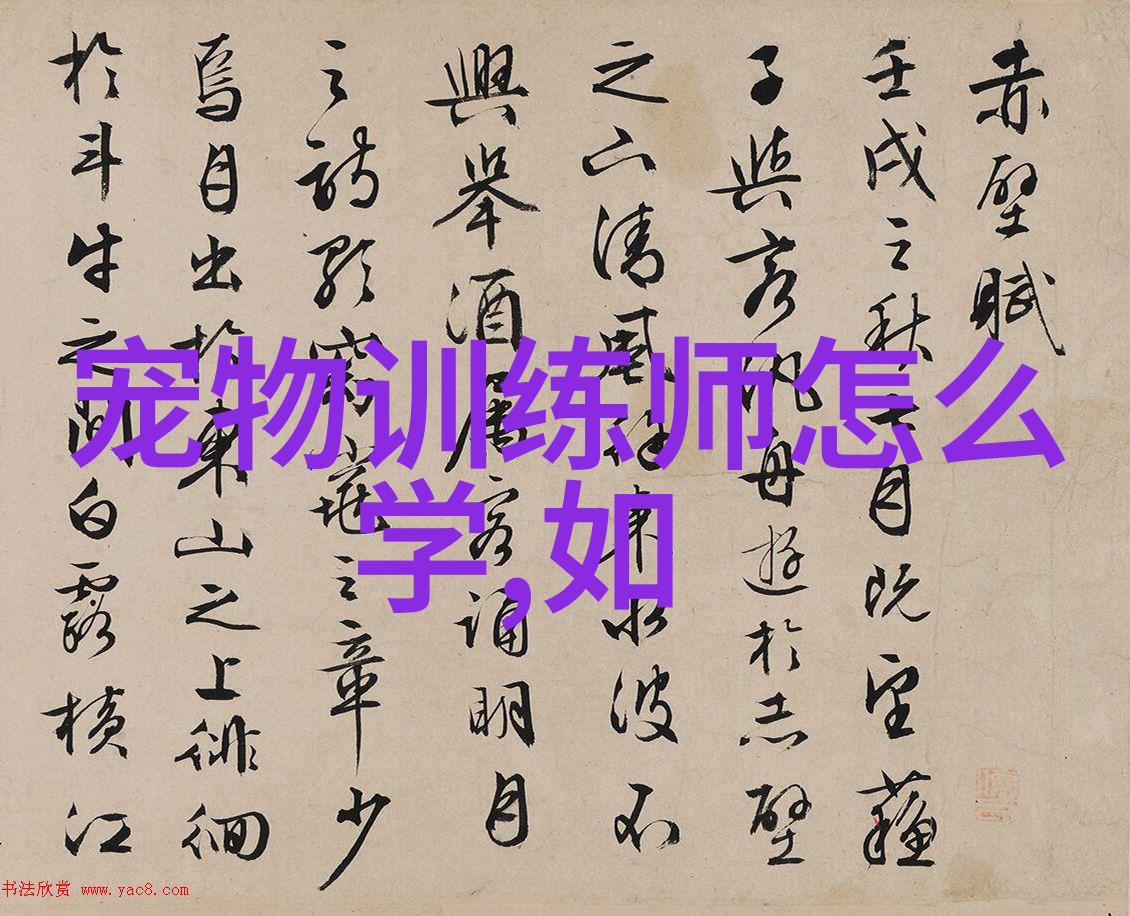 赤壁賦
壬戌之秋七月既望蘇
子與客泛舟遊於赤壁
之下清風徐來水波不
興舉酒屬客誦明月
之詩歌窈窕之章少
焉月出於東山之上徘徊
於斗牛之間白露橫江
宠物训练师怎么
学,如
书法欣赏 www.yac8.com